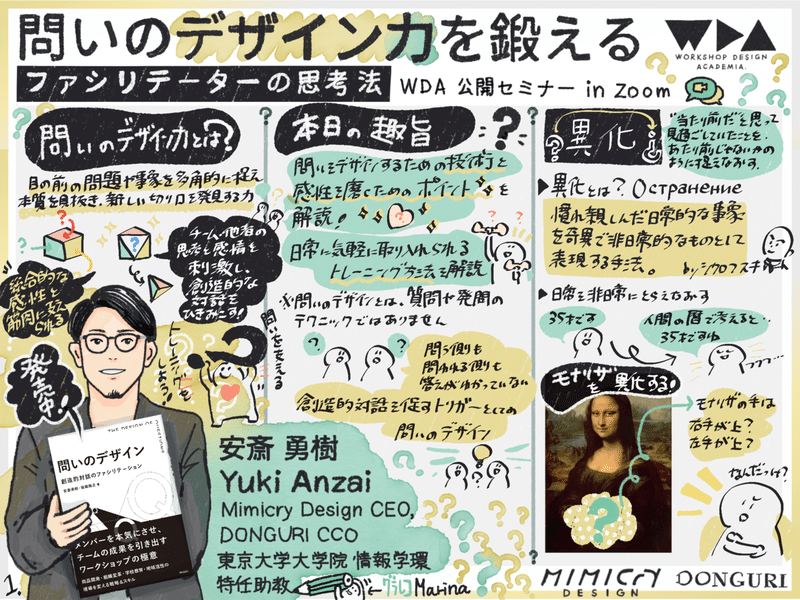 問いのデザイン力を鍛える
WDA
WORKSHOP DESIGN
ACADEMIA.
ファシリテーターの思考法
WDA 公開セミナー in Zoom
問いのデザイン力とは?
目の前の問題や事象を多角的に捉え
本質を見抜き、新しい切り口を発見する力
チーム・他者の
思考と感情を
刺激し、
創造的な
対話を
ひきおこす!
総合的な
感性と
筋肉に支え
られる
トレーニングを
しよう!
問いを支える
発売中!
THE DESIGN OF QUESTIONS
問いのデザイン
創造的対話のファシリテーション
安斎勇樹・塩瀬隆之 著
メンバーを本気にさせ、
チームの成果を引き出す
ワークショップの極意
商品開発・組織変革・学校教育・地域活性の
現場を変える戦略&スキル
1.
本日の趣旨
問いをデザインするための技術と
感性を磨くためのポイントを
解説!
日常に気軽に取り入れられる
トレーニング方法を解説
※問いのデザインとは、質問や発問の
テクニックではありません
問う側も
問われる側も
答えがわかっていない
創造的対話を促すトリガーとしての
問いのデザイン
安斎 勇樹
Yuki Anzai
Mimicry Design CEO,
DONGURI CCO
東京大学大学院 情報学環
特任助教
グラレコ Marina
異化
"当たり前だ"と思って
見過ごしていたことを、
あたり前じゃないかの
ように捉えなおす。
▶異化とは? Остранение
慣れ親しんだ日常的な事象
を奇異で非日常的なものとして
表現する手法。
by シクロフスキー
▶日常を非日常にとらえなおす
35才です
人間の暦で考えると…
35才ですね
フフフ…
モナリザを異化する!
モナリザの手は
右手が上?
左手が上?
なんだっけ?
MIMICRY
DESIGN
DONGURI